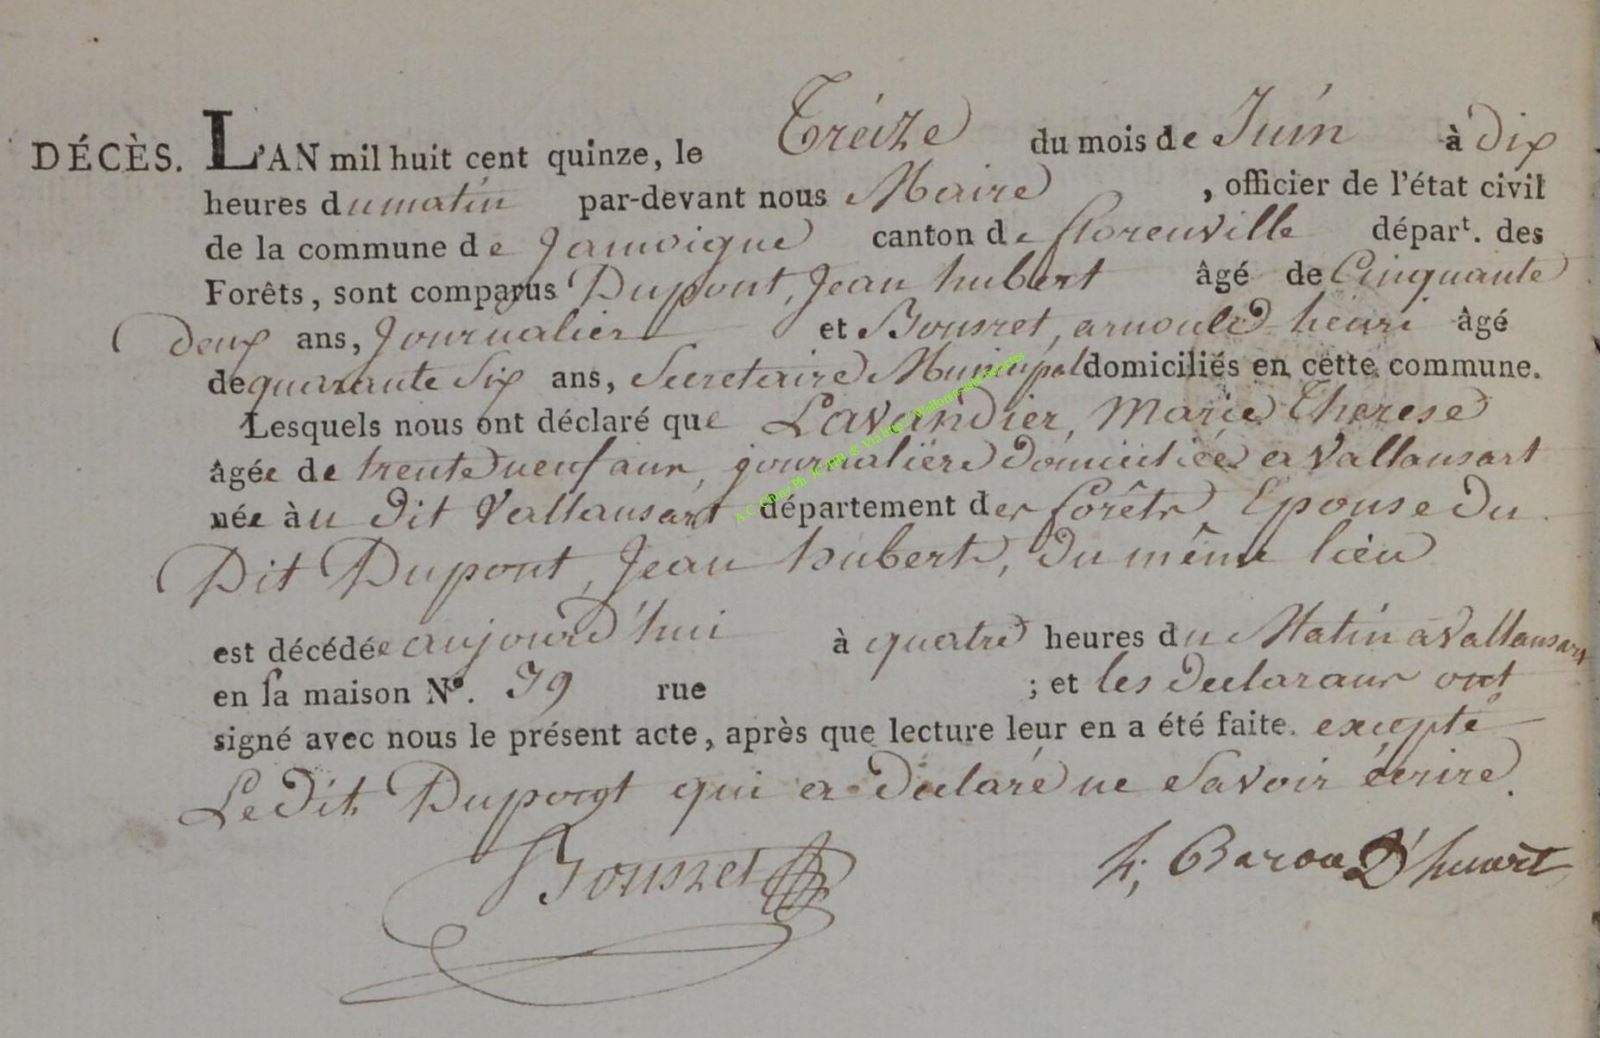 DÉCÈS. L'AN mil huit cent quinze, le Treize du mois de Juin à dix
heures du matin par-devant nous Maire, officier de l'état civil
de la commune de Jamoigne canton de florenville départ. des
Forêts, sont comparus Dupont, Jean hubert âgé de Cinquante
Deux ans, Journalier et Bousret, arnould henri âgé
de quarante Six ans, Secretaire Municipal domiciliés en cette commune.
Lesquels nous ont déclaré que Lavandier, Marie Therese
âgée de trente neuf ans, journalière domiciliée a Vallansart
née àu dit Vallansart département des forêts Epouse du
Dit Dupont, Jean hubert, du même lieu
est décédée aujourd'hui à quatre heures du Matin a Vallansart
en sa maison N°. 39 rue ; et les declarans ont
signé avec nous le présent acte, après que lecture leur en a été faite. excepté
Le Dit Dupont qui a declaré ne Savoir écrire.
Bousret h; Baron D'huart